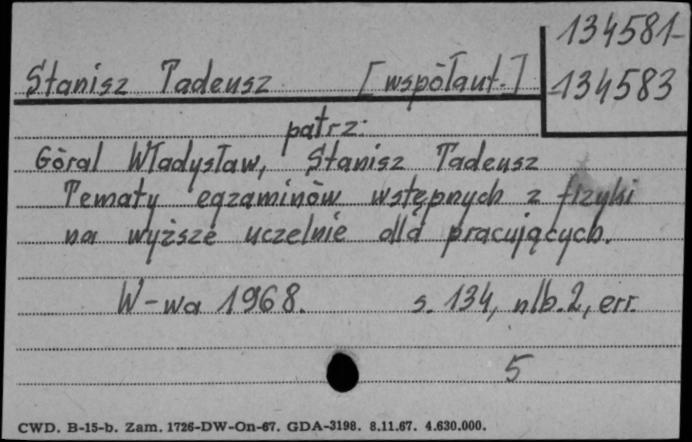 134581-
Stanisz Tadeusz [współaut.] -134583
patrz:
Góral Władysław, Stanisz Tadeusz
Tematy egzaminów wstępnych z fizyki
na wyższe uczelnie dla pracujących.
W-wa 1968. s. 134, nlb. 2, err.
5
CWD. B-15-b. Zam. 1726-DW-On-67. GDA-3198. 8.11.67. 4.630.000.